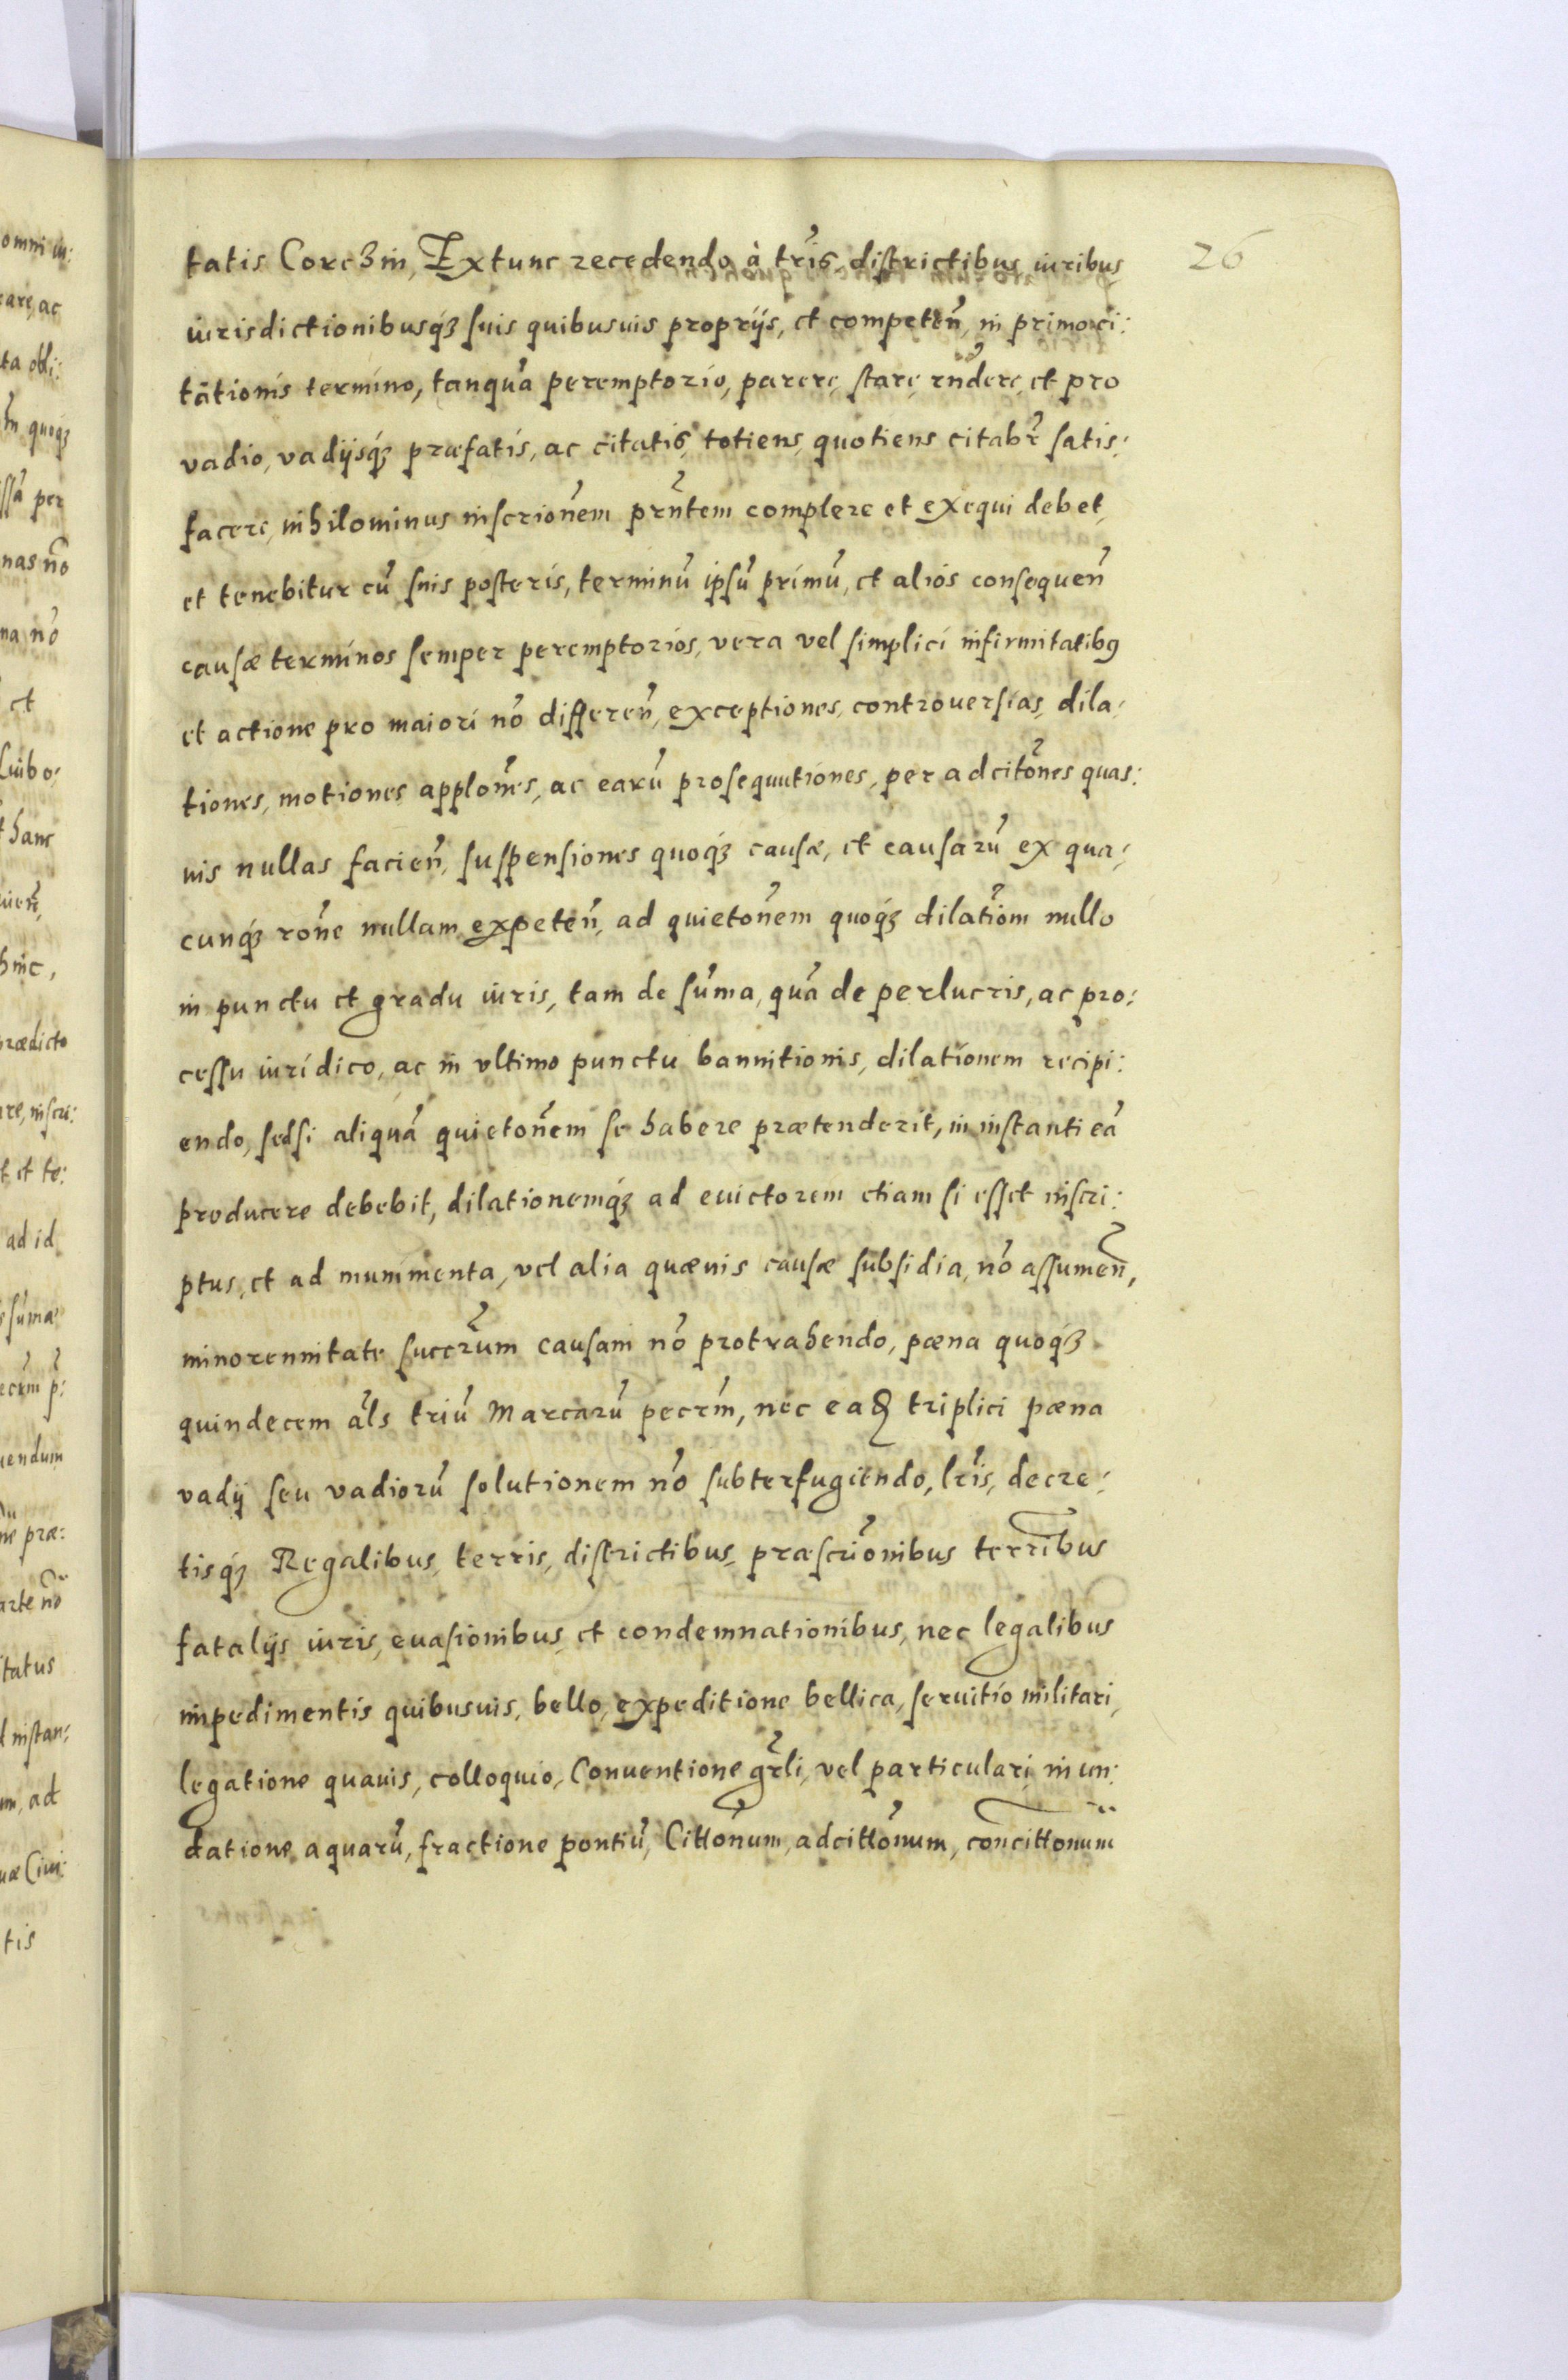 26
tatis Corczin, Extunc recedendo à tr̃is, districtibus, iuribus,
iurisdictionibusq́ʒ suis quibusuis proprijs, et competeñ, in primo ci:
tationis termino, tanqua᷃ peremptorio, parere, stare, rñdere, et pro
vadio, vadijsq́ʒ præfatis, ac citatis, totiens, quotiens citabr̃ satis:
facere, nihilominus inscrioñem pr̃ntem complere et exequi debet,
et tenebitur cũ suis posteris, terminũ ipsũ primũ, et alios consequeñ
causæ terminos semper peremptorios, vera vel simplici infirmitatibꝰ
et actione pro maiori nõ differeñ, exceptiones, controuersias, dila:
tiones, motiones apploñes, ac earũ prosequutiones, per adcitoñes quas:
uis nullas facieñ, suspensiones quoq́ʒ causæ, et causarũ ex qua:
cunq́ʒ roñe nullam expeteñ, ad quietoñem quoq́ʒ dilatiõm nullo
in punctu et gradu iuris, tam de sum̃a, quã de perlucris, ac pro:
cessu iuridico, ac in vltimo punctu bannitionis, dilationem recipi:
endo, sed si aliquã quietoñem se habere prætenderit, in instanti eã
producere debebit, dilationemq́ʒ ad euictorem etiam si esset inscri:
ptus, et ad munimenta, vel alia quæuis causæ subsidia, nõ assumeñ,
minorennitate succr̃um causam nõ protrahendo, pæna quoq́ʒ
quindecem ãls triũ Marcarũ pecr̃m, nec eaꝝ triplici pæna
vadij seu vadiorũ solutionem nõ subterfugiendo, lr̃is, decre:
tisq́ʒ Regalibus, terris, districtibus, præscriõnibus terr̃ibus
fatalijs iuris, euasionibus, et condemnationibus, nec legalibus
impedimentis quibusuis, bello, expeditione bellica, seruitio militari,
legatione quauis, colloquio, Conuentione gr̃li, vel particulari, inun:
datione aquarũ, fractione pontiũ, Cittoñum, adcittoñum, concittonum